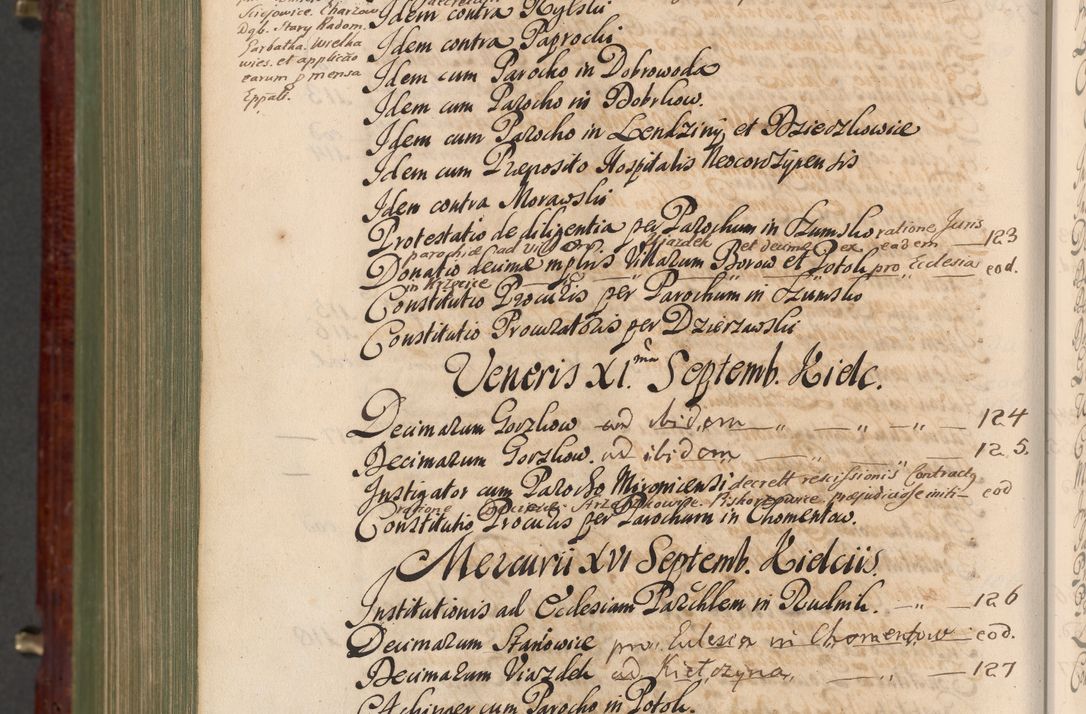 Scrisowice. Charzow
Dąb. Stary Radom.
Garbatka. Wielka
wies. et applicao
earum p mensa
Eppali.
Idem contra Rylski
Idem contra Paprocki
Idem cum Parocho in Dobrowoda
Idem cum Parocho in Bobrkow.
Idem cum Parocho in Lendziny et Dzieczkowice
Idem cum Præposito Hospitalis Neocorczynensis
Idem contra Morawski
Protestatio de diligentia per Parochum in Szumsko ratione Juris — 123
parochiæ ad vill et decimæ ex eadem
Donatio decimæ mplris Villarum Borow et Potok pro Ecclesia eod.
Constitutio Procuris per Parochum in Szumsko
Constitutio Procuratoris per Dzierzawski
Veneris XI.ma Septemb. Kielc.
Decimarum Gorzkow ad ibidem — „ — „ — „ — 124
Decimarum Gorzkow. ad ibidem — „ — 125.
Instigator cum Parocho Mironicensi decrett rescissionis Contractus eod
ratione
Constitutio Procuris per Parochum in Chomentow.
Mercurii XVI Septemb. Kielciis.
Institutionis ad Ecclesiam Parochlem in Rudnik. — „ — 126
Decimarum Stanowice pro Eclesia in Chomentow — eod.
Decimarum Viazdek ad Kiełczyna — „ — 127
Achinger cum Parocho in Potok.